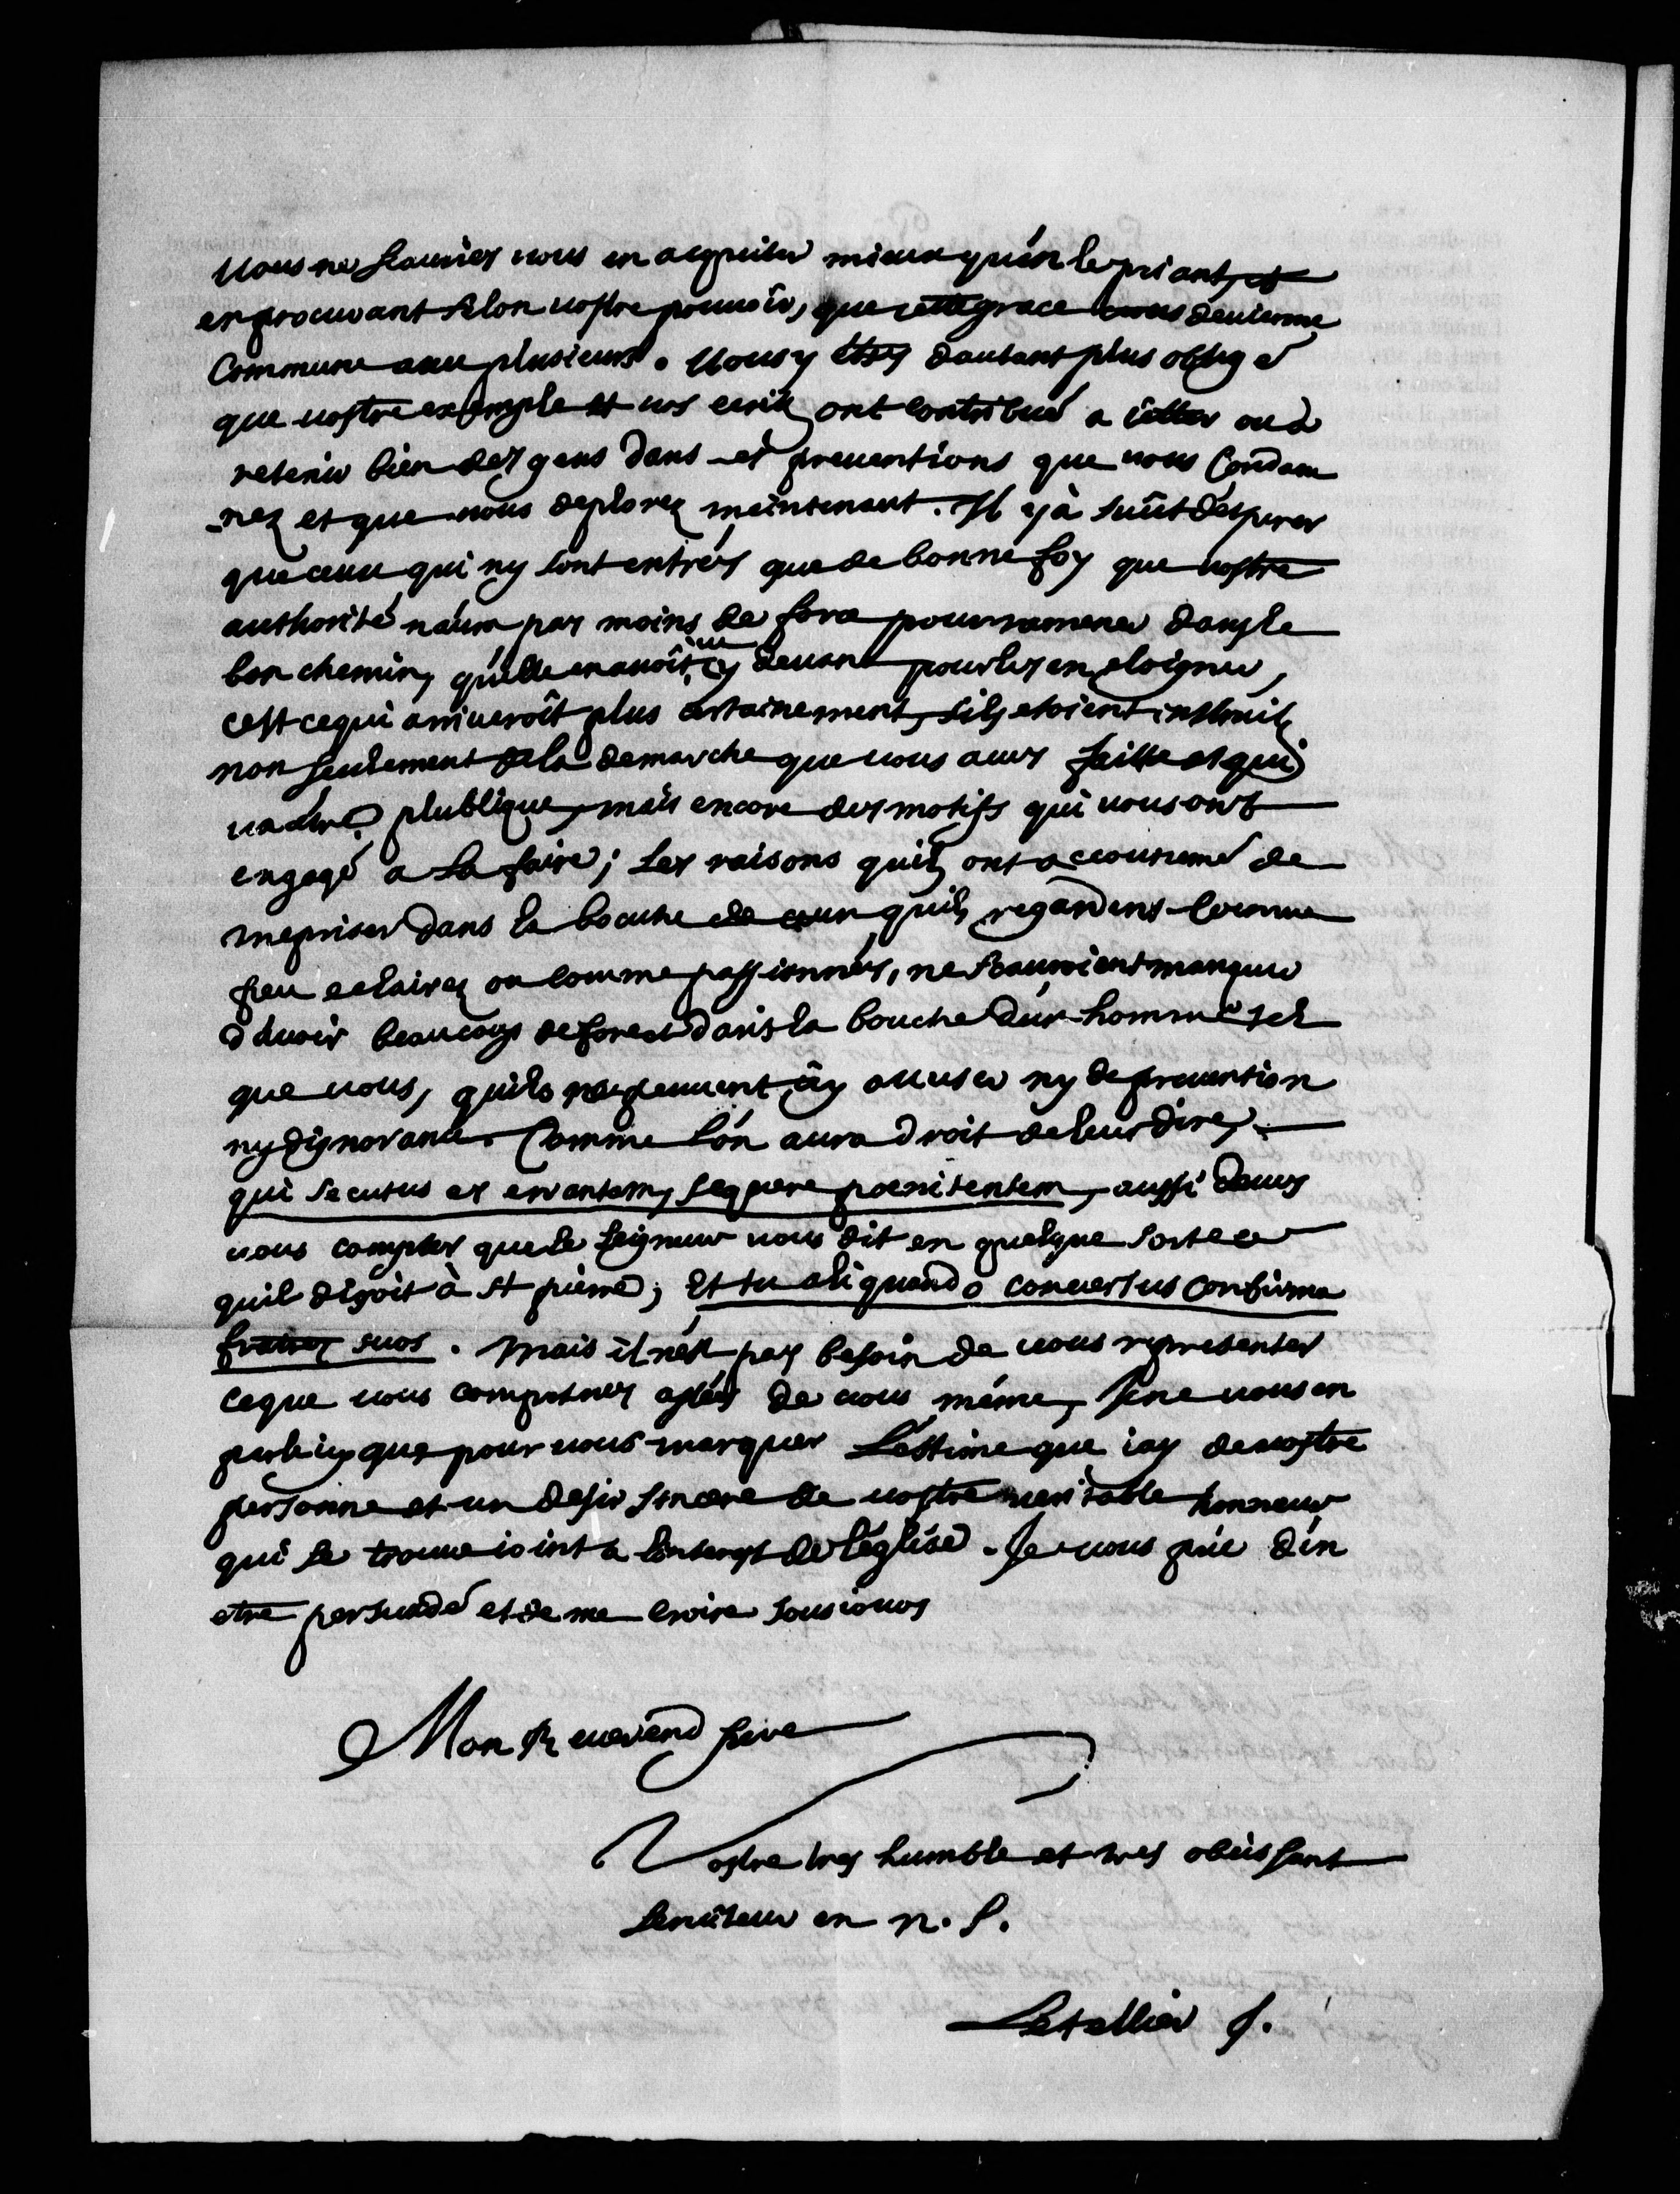 Vous ne scauries vous en acquiter mieux qu'en le priant, et
en procurant selon vostre pouuoir, que cette grace vous deuienne
Commune auec plusieurs. Vous y etes dautant plus obligé
que vostre exemple et vos ecrits ont contribué a ietter ou à
retenir bien des gens dans les preuentions que vous Condam
-nez et que vous deplorez maintenant. Il y à suiet desperer
que ceux qui ny sont entrés que de bonne foy que vostre
authorité n'aura pas moins de force pour ramener dans le
bon chemin, qu'elle en auoit eue cy deuant pour les en eloigner,
cest ce qui arriueroit plus certainement, sils etoient instruits
non seulement de la demarche que vous aues faitte et qui
va etre plublique, mais encore des motifs qui vous ont
engagé a la faire; Les raisons quils ont accoutumé de
mepriser dans la bouche de ceux quils regardent comme
peu eclairez ou comme passionnés, ne scauroient manquer
d'auoir beaucoup de force dans la bouche d'un homme tel
que vous, quils ne peuuent accuser ny de preuention
ny dignorance. Comme l'on aura droit de leur dire,
qui secutus es errantem, sequere poenitentem, aussi deues
vous compter que le seigneur vous dit en quelque sorte ce
quil disoit à St pierre; Et tu aliquando conuersus confirma
fratres tuos. Mais il n'est pas besoin de vous representer
ce que vous comprenes asses de vous même, Je ne vous en
parle icy que pour vous marquer L'estime que iay de vostre
personne et un desir sincere de vostre veritable honneur
qui se trouue ioint a l'interest de l'église. Je vous prie d'en
etre persuadé et de me croire tousiours
Mon Reuerend pere
Vostre tres humble et tres obeissant
seruiteur en n. S.
Letellier J.